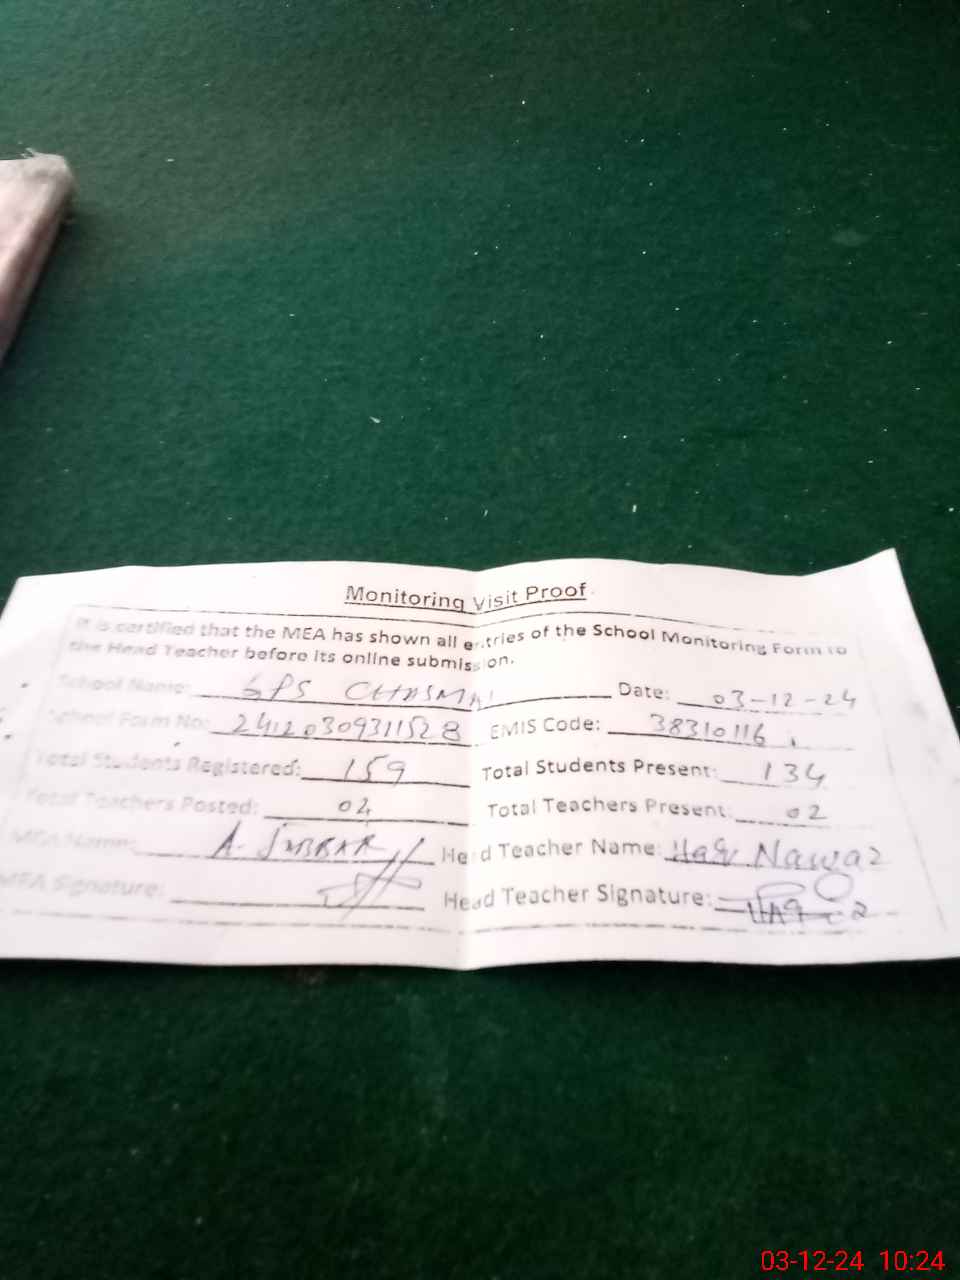 Monitoring Visit Proof
It is certified that the MEA has shown all entries of the School Monitoring Form to
the Head Teacher before its online submission.
School Name: GPS Date: 03-12-24
School Form No: 24120309311528 EMIS Code: 38310116
Total Students Registered: 159 Total Students Present: 134
Total Teachers Posted: 04 Total Teachers Present: 02
MEA Name: A. JABBAR Head Teacher Name: Haq Nawaz
MEA Signature: Head Teacher Signature:
03-12-24 10:24